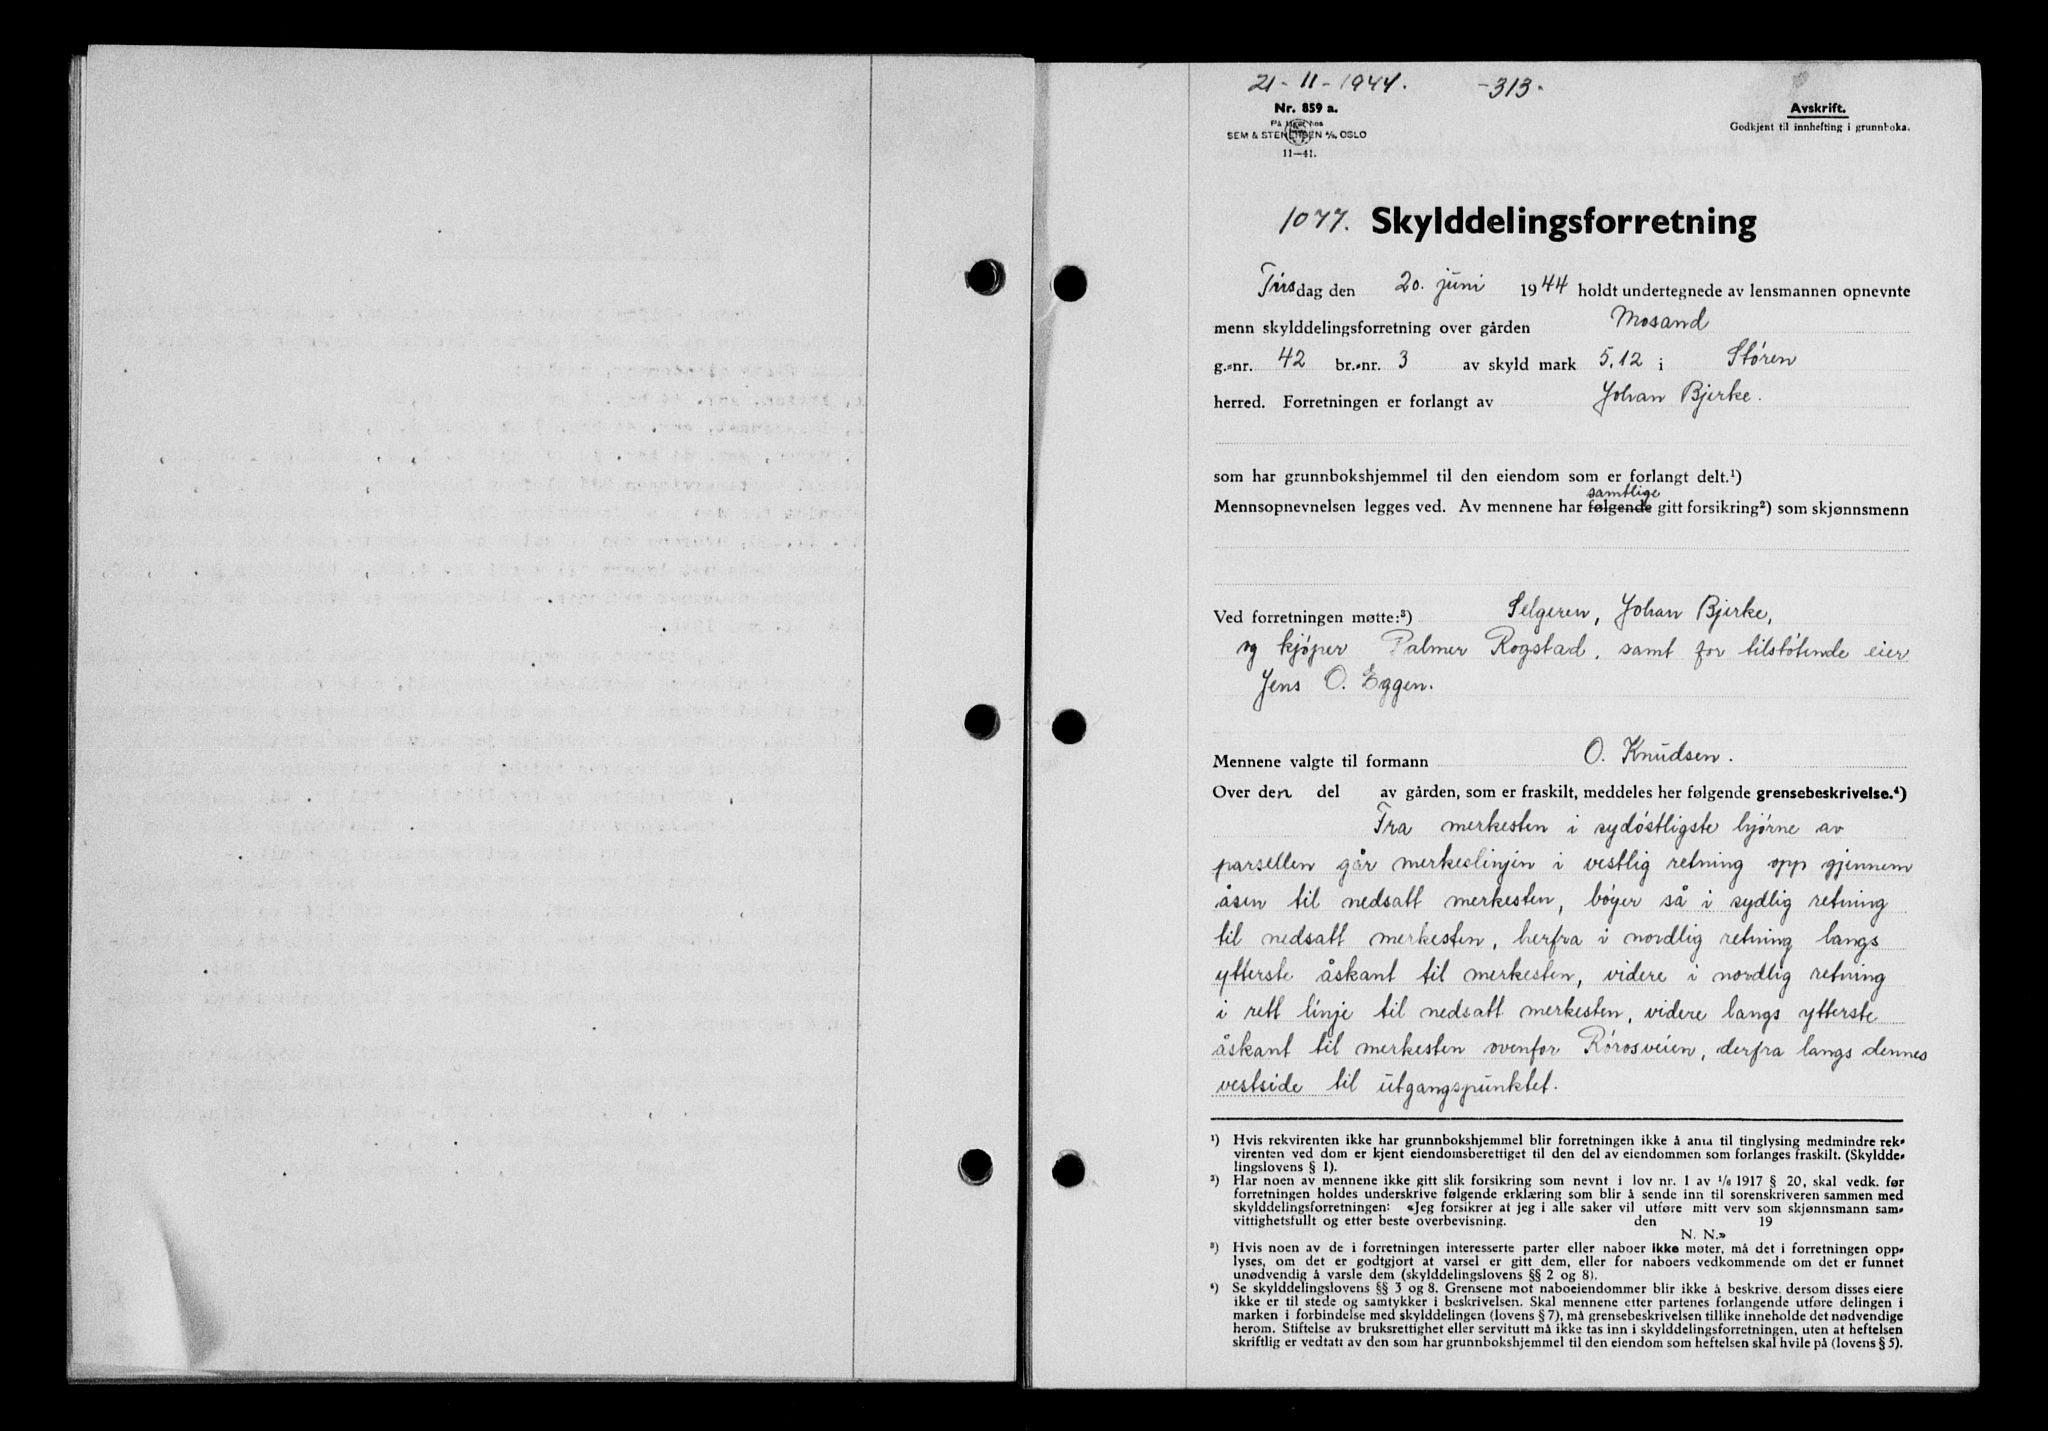 21-11-1944. -313-
Nr. 859 a.
SEM & STENERSEN A/S, OSLO
11—41.
Avskrift.
Godkjent til innhefting i grunnboka.
1077. Skylddelingsforretning
Tirsdag den 20. juni 1944 holdt undertegnede av lensmannen opnevnte
menn skylddelingsforretning over gården Mosand
g.-nr. 42 br.-nr. 3 av skyld mark 5,12 i Støren
herred. Forretningen er forlangt av Johan Bjerke.
som har grunnbokshjemmel til den eiendom som er forlangt delt.¹)
samtlige
Mennsopnevnelsen legges ved. Av mennene har følgende gitt forsikring²) som skjønnsmenn
Ved forretningen møtte:³) Selgeren, Johan Bjerke,
og kjøper Palmer Rogstad, samt for tilstøtende eier
Jens O. Eggen.
Mennene valgte til formann O. Knudsen.
Over den del av gården, som er fraskilt, meddeles her følgende grensebeskrivelse.⁴)
Fra merkesten i sydøstligste hjørne av
parsellen går merkeslinjen i vestlig retning opp gjennem
åsen til nedsatt merkesten, bøyer så i sydlig retning
til nedsatt merkesten, herfra i nordlig retning langs
ytterste åskant til merkesten, videre i nordlig retning
i rett linje til nedsatt merkesten, videre langs ytterste
åskant til merkesten ovenfor Rørosveien, derfra langs dennes
vestside til utgangspunktet.
¹) Hvis rekvirenten ikke har grunnbokshjemmel blir forretningen ikke å anta til tinglysing medmindre rek-
virenten ved dom er kjent eiendomsberettiget til den del av eiendommen som forlanges fraskilt. (Skyldde-
lingslovens § 1).
²) Har noen av mennene ikke gitt slik forsikring som nevnt i lov nr. 1 av 1/6 1917 § 20, skal vedk. før
forretningen holdes underskrive følgende erklæring som blir å sende inn til sorenskriveren sammen med
skylddelingsforretningen: «Jeg forsikrer at jeg i alle saker vil utføre mitt verv som skjønnsmann sam-
vittighetsfullt og etter beste overbevisning. den 19
N. N.»
³) Hvis noen av de i forretningen interesserte parter eller naboer ikke møter, må det i forretningen opp-
lyses, om det er godtgjort at varsel er gitt dem, eller for naboers vedkommende om det er funnet
unødvendig å varsle dem (skylddelingslovens §§ 2 og 8).
⁴) Se skylddelingslovens §§ 3 og 8. Grensene mot naboeiendommer blir ikke å beskrive, dersom disses eiere
ikke er til stede og samtykker i beskrivelsen. Skal mennene etter partenes forlangende utføre delingen i
marken i forbindelse med skylddelingen (lovens § 7), må grensebeskrivelsen tillike inneholde det nødvendige
herom. Stiftelse av bruksrettighet eller servitutt må ikke tas inn i skylddelingsforretningen, uten at heftelsen
skriftlig er vedtatt av den som har grunnbokshjemmel til den eiendom som heftelsen skal hvile på (lovens § 5).